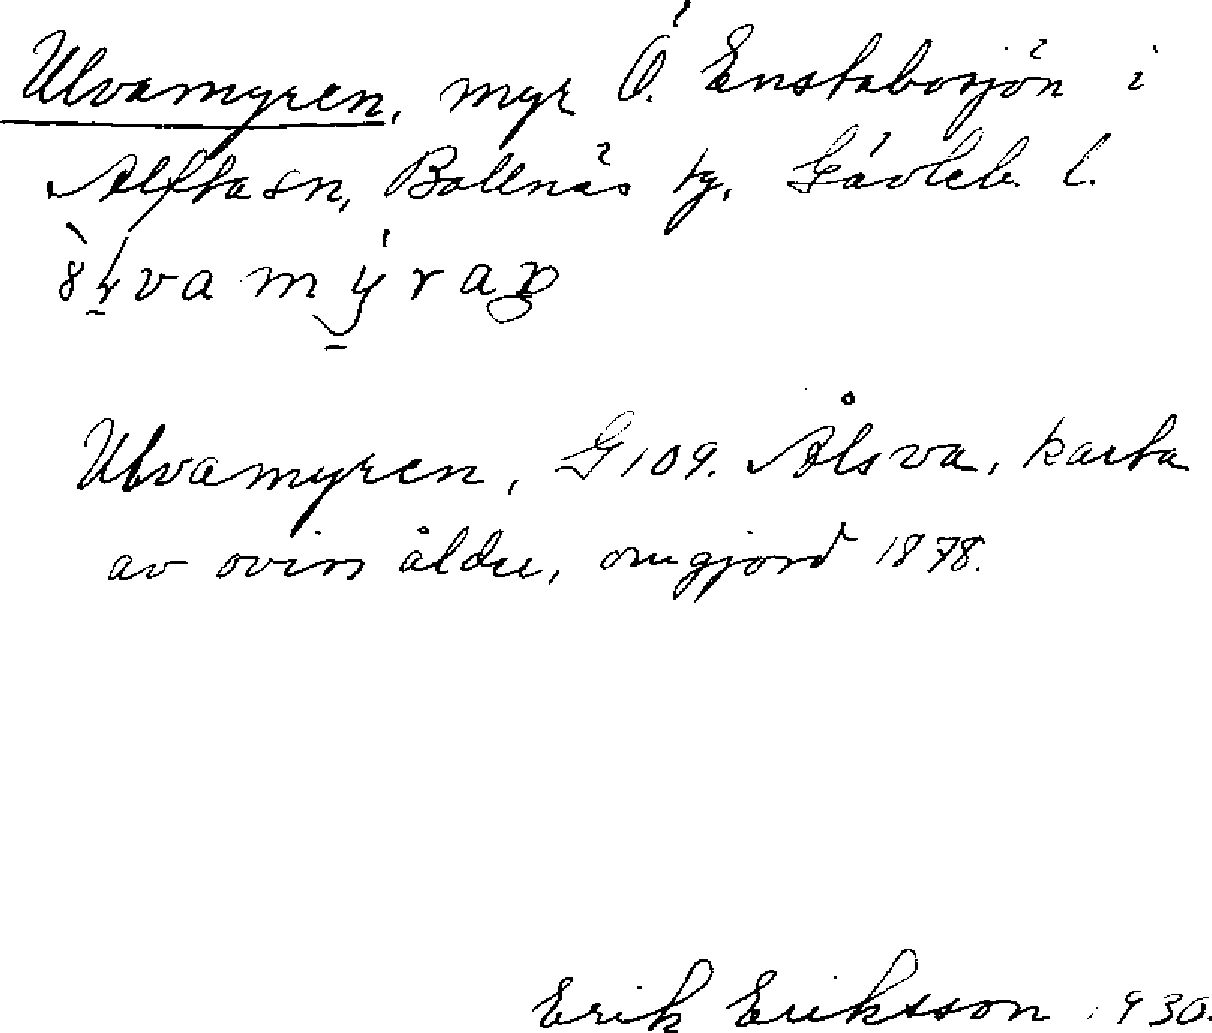 Ulvamyren, myr Ö. Enstabosjön i
Alfta sn, Bollnäs tg, Gävleb. l.
Ulvamyren, G 109. Älsva, karta
av oviss ålder, omgjord 1878.
Erik Eriksson 1930.